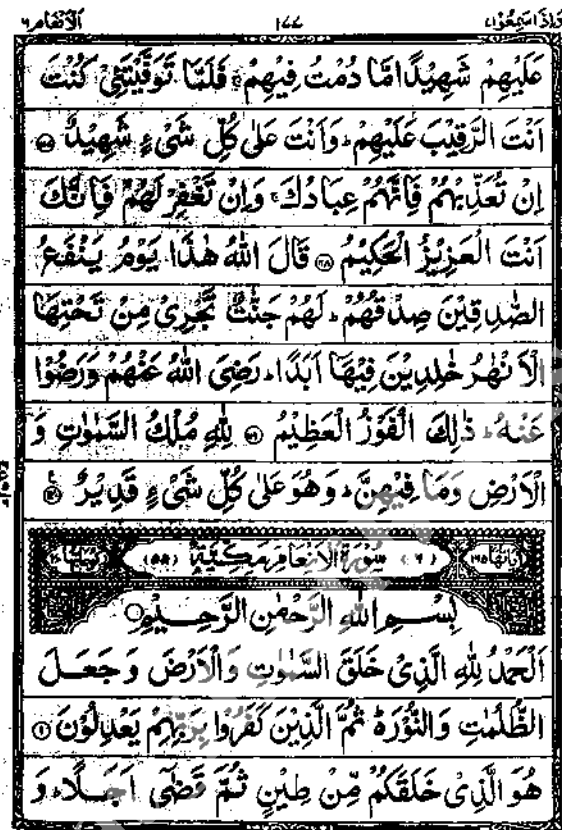 وَاِذَا سَمِعُوْا ۷ ۱۷۷ اَلْاَنْعَام ۶
عَلَيْهِمْ شَهِيْدًا مَّا دُمْتُ فِيْهِمْ ۚ فَلَمَّا تَوَفَّيْتَنِيْ كُنْتَ
اَنْتَ الرَّقِيْبَ عَلَيْهِمْ ؕ وَاَنْتَ عَلٰى كُلِّ شَيْءٍ شَهِيْدٌ ۝
اِنْ تُعَذِّبْهُمْ فَاِنَّهُمْ عِبَادُكَ ۚ وَاِنْ تَغْفِرْ لَهُمْ فَاِنَّكَ
اَنْتَ الْعَزِيْزُ الْحَكِيْمُ ۝ قَالَ اللّٰهُ هٰذَا يَوْمُ يَنْفَعُ
الصّٰدِقِيْنَ صِدْقُهُمْ ؕ لَهُمْ جَنّٰتٌ تَجْرِيْ مِنْ تَحْتِهَا
الْاَنْهٰرُ خٰلِدِيْنَ فِيْهَآ اَبَدًا ؕ رَضِيَ اللّٰهُ عَنْهُمْ وَرَضُوْا
عَنْهُ ؕ ذٰلِكَ الْفَوْزُ الْعَظِيْمُ ۝ لِلّٰهِ مُلْكُ السَّمٰوٰتِ وَ
الْاَرْضِ وَمَا فِيْهِنَّ ؕ وَهُوَ عَلٰى كُلِّ شَيْءٍ قَدِيْرٌ ۝
اٰيَاتُهَا ۱۶۵ (۶) سُوْرَةُ الْاَنْعَامِ مَكِّيَّةٌ (۵۵) رُكُوْعَاتُهَا ۲۰
بِسْمِ اللّٰهِ الرَّحْمٰنِ الرَّحِيْمِ ۝
اَلْحَمْدُ لِلّٰهِ الَّذِيْ خَلَقَ السَّمٰوٰتِ وَالْاَرْضَ وَجَعَلَ
الظُّلُمٰتِ وَالنُّوْرَ ؕ ثُمَّ الَّذِيْنَ كَفَرُوْا بِرَبِّهِمْ يَعْدِلُوْنَ ۝
هُوَ الَّذِيْ خَلَقَكُمْ مِّنْ طِيْنٍ ثُمَّ قَضٰٓى اَجَلًا ؕ وَ